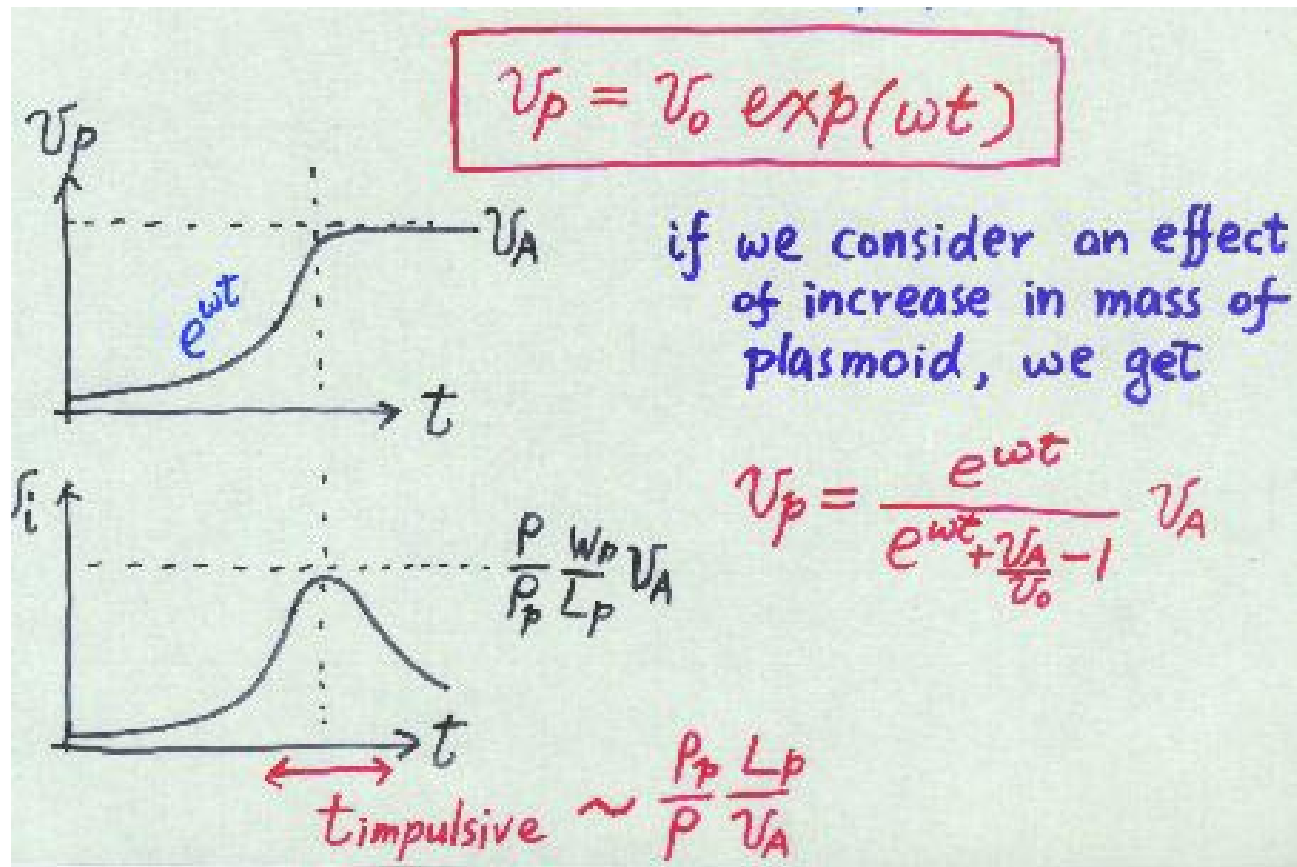 v_p = v_0 exp(ωt)
v_p
v_A
e^{ωt}
t
if we consider an effect
of increase in mass of
plasmoid, we get
v_p = \frac{e^{ωt}}{e^{ωt} + \frac{v_A}{v_0} - 1} v_A
\frac{ρ}{ρ_p} \frac{w_p}{L_p} v_A
t
t_{impulsive} ~ \frac{ρ_p}{ρ} \frac{L_p}{v_A}